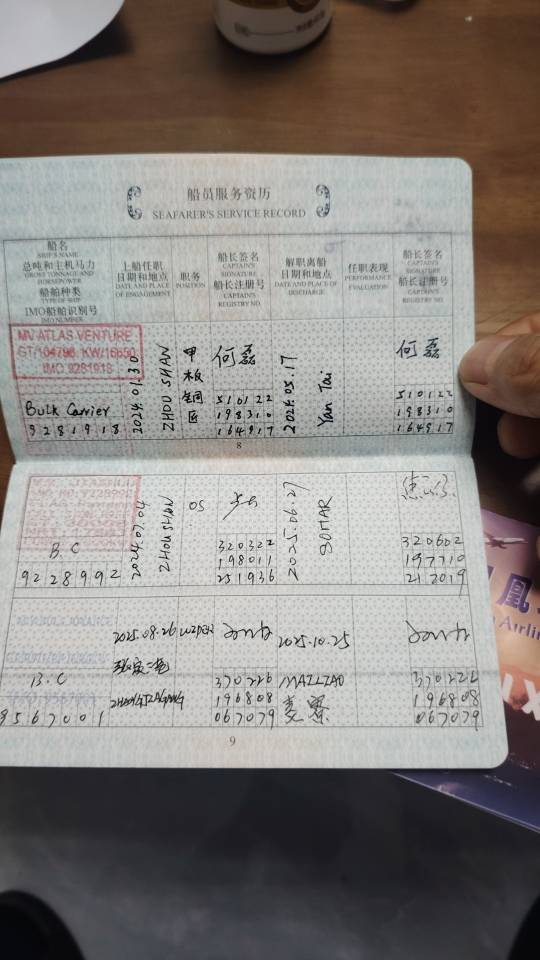 船员服务资历
SEAFARER'S SERVICE RECORD
船名
SHIP'S NAME
总吨和主机马力
GROSS TONNAGE AND HORSEPOWER
船舶种类
TYPE OF SHIP
IMO船舶识别号
IMO NUMBER
上船任职
日期和地点
DATE AND PLACE OF ENGAGEMENT
职务
POSITION
船长签名
CAPTAIN'S SIGNATURE
船长注册号
CAPTAIN'S REGISTRY NO.
解职离船
日期和地点
DATE AND PLACE OF DISCHARGE
任职表现
PERFORMANCE EVALUATION
船长签名
CAPTAIN'S SIGNATURE
船长注册号
CAPTAIN'S REGISTRY NO.
MV ATLAS VENTURE
GT/104798 KW/16650
IMO 9281918
Bulk Carrier
9281918
2024.01.30
ZHOUSHAN
甲板铜匠
何磊
510122
198310
164917
2024.05.17
Yan Tai
何磊
510122
198310
164917
8
B.C
9228992
2024.07.04
ZHOUSHAN
OS
320322
198011
251936
2025.06.27
SOHAR
320602
197710
217019
B.C
9567001
2025.08.26
2025.10.25
370226
196808
067079
MAILIAO
麦寮
370226
196808
067079
9
凰
Airline